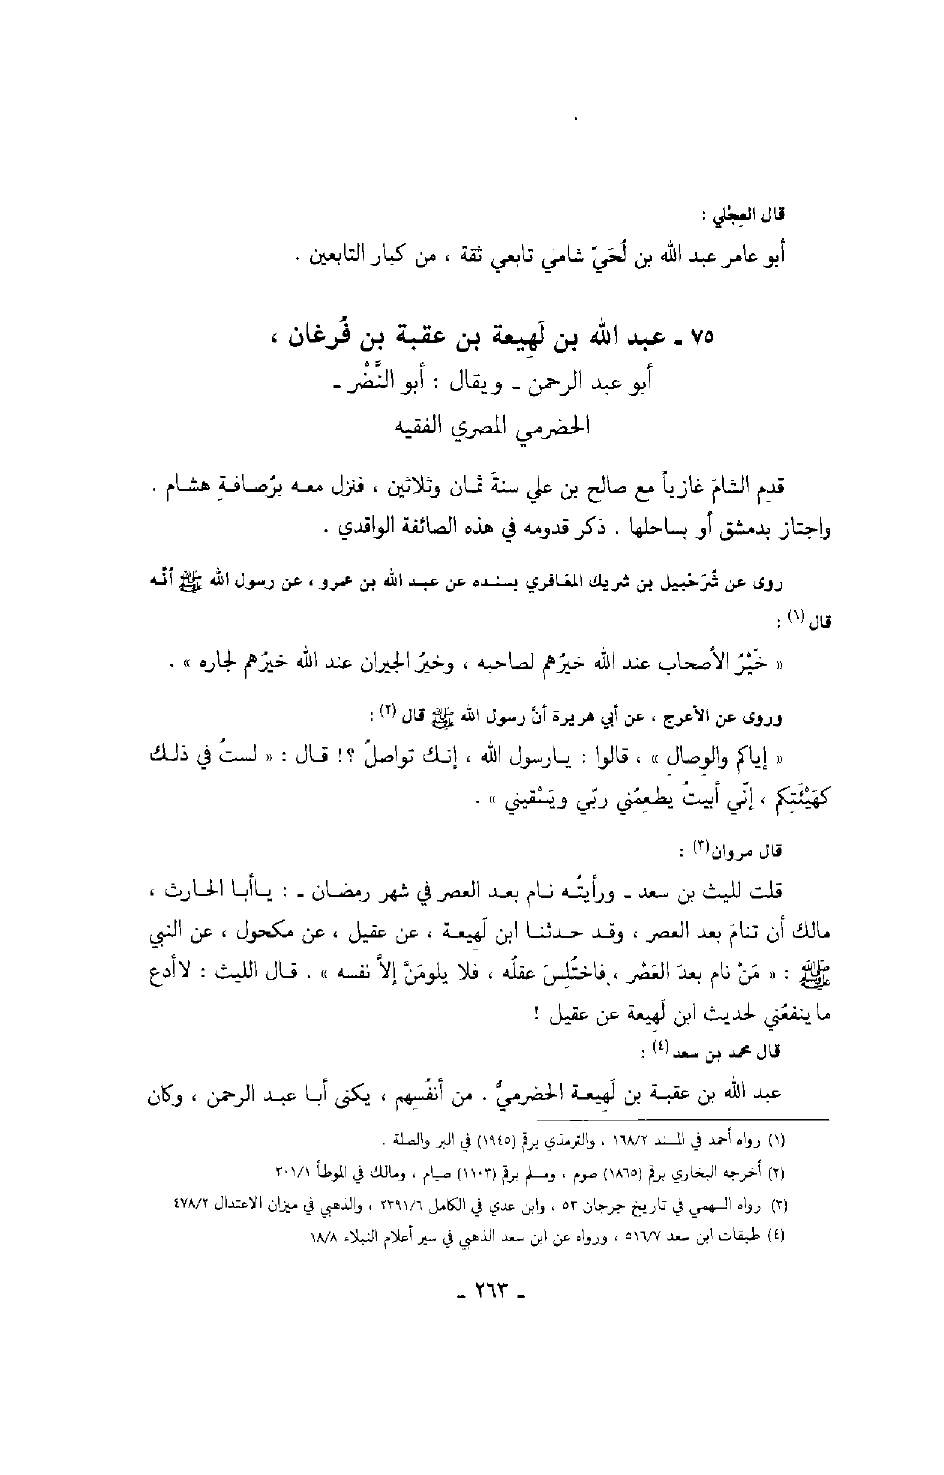 قال العِجْلي :
أبو عامر عبد الله بن لُحَيّ شامي تابعي ثقة ، من كبار التابعين .
٧٥ ـ عبد الله بن لَهِيعة بن عقبة بن فُرغان ،
أبو عبد الرحمن ـ ويقال : أبو النَّضْر ـ
الحضرمي المصري الفقيه
قدم الشامَ غازياً مع صالح بن علي سنةَ ثمان وثلاثين ، فنزل معه برُصافةِ هشام .
واجتاز بدمشق أو بساحلها . ذكر قدومه في هذه الصائفة الواقدي .
روى عن شُرَحْبيل بن شريك المعَافري بسنده عن عبد الله بن عمرو ، عن رسول الله ﷺ أنّه
قال (١) :
« خَيْرُ الأصحاب عند الله خيرُهم لصاحبه ، وخيرُ الجيران عند الله خيرُهم لجاره » .
وروى عن الأعرج ، عن أبي هريرة أنّ رسول الله ﷺ قال (٢) :
« إياكم والوِصالِ » ، قالوا : يارسول الله ، إنك تواصلُ ؟! قال : « لستُ في ذلك
كهَيْئَتِكم ، إنّي أبيتُ يطعمُني ربّي ويَسْقيني » .
قال مروان(٣) :
قلت لليث بن سعد ـ ورأيتُه نام بعد العصر في شهر رمضان ـ : ياأبا الحارث ،
مالك أن تنامَ بعد العصر ، وقد حدثنا ابن لَهِيعة ، عن عقيل ، عن مكحول ، عن النبي
ﷺ : « مَنْ نام بعدَ العَصْر ، فاختُلِسَ عقلُه ، فلا يلومَنَّ إلاَّ نفسه » . قال الليث : لاأدع
ما ينفعُني لحديث ابن لَهِيعة عن عقيل !
قال محمد بن سعد (٤) :
عبد الله بن عقبة بن لَهِيعة الحضرميُّ . من أنفُسِهم ، يكنى أبا عبد الرحمن ، وكان
(١) رواه أحمد في المسند ١٦٨/٢ ، والترمذي برقم (١٩٤٥) في البر والصلة .
(٢) أخرجه البخاري برقم (١٨٦٥) صوم ، ومسلم برقم (١١٠٣) صيام ، ومالك في الموطأ ٣٠١/١
(٣) رواه السهمي في تاريخ جرجان ٥٣ ، وابن عدي في الكامل ٢٣٩١/٦ ، والذهبي في ميزان الاعتدال ٤٧٨/٢
(٤) طبقات ابن سعد ٥١٦/٧ ، ورواه عن ابن سعد الذهبي في سير أعلام النبلاء ١٨/٨
ـ ٢٦٣ ـ